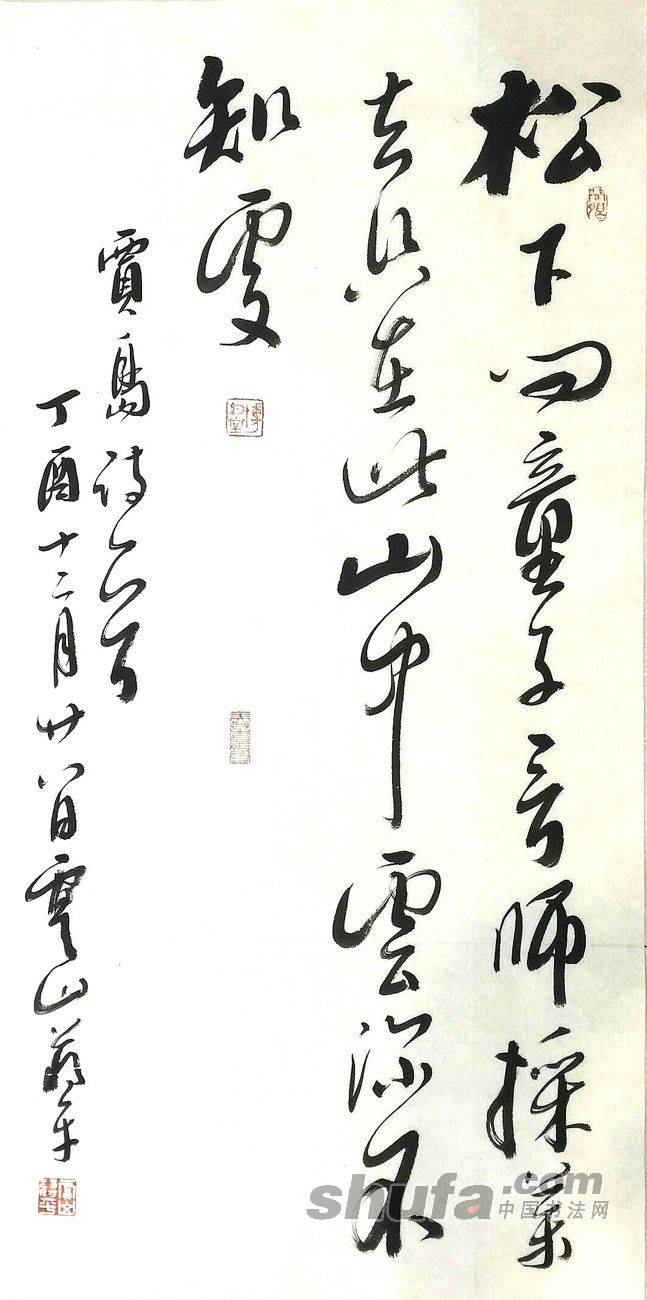 松下問童子言師採藥
去只在此山中雲深不
知處
賈島詩一首
丁酉十二月廿八日虞山蔣平
shufa.com
中国书法网